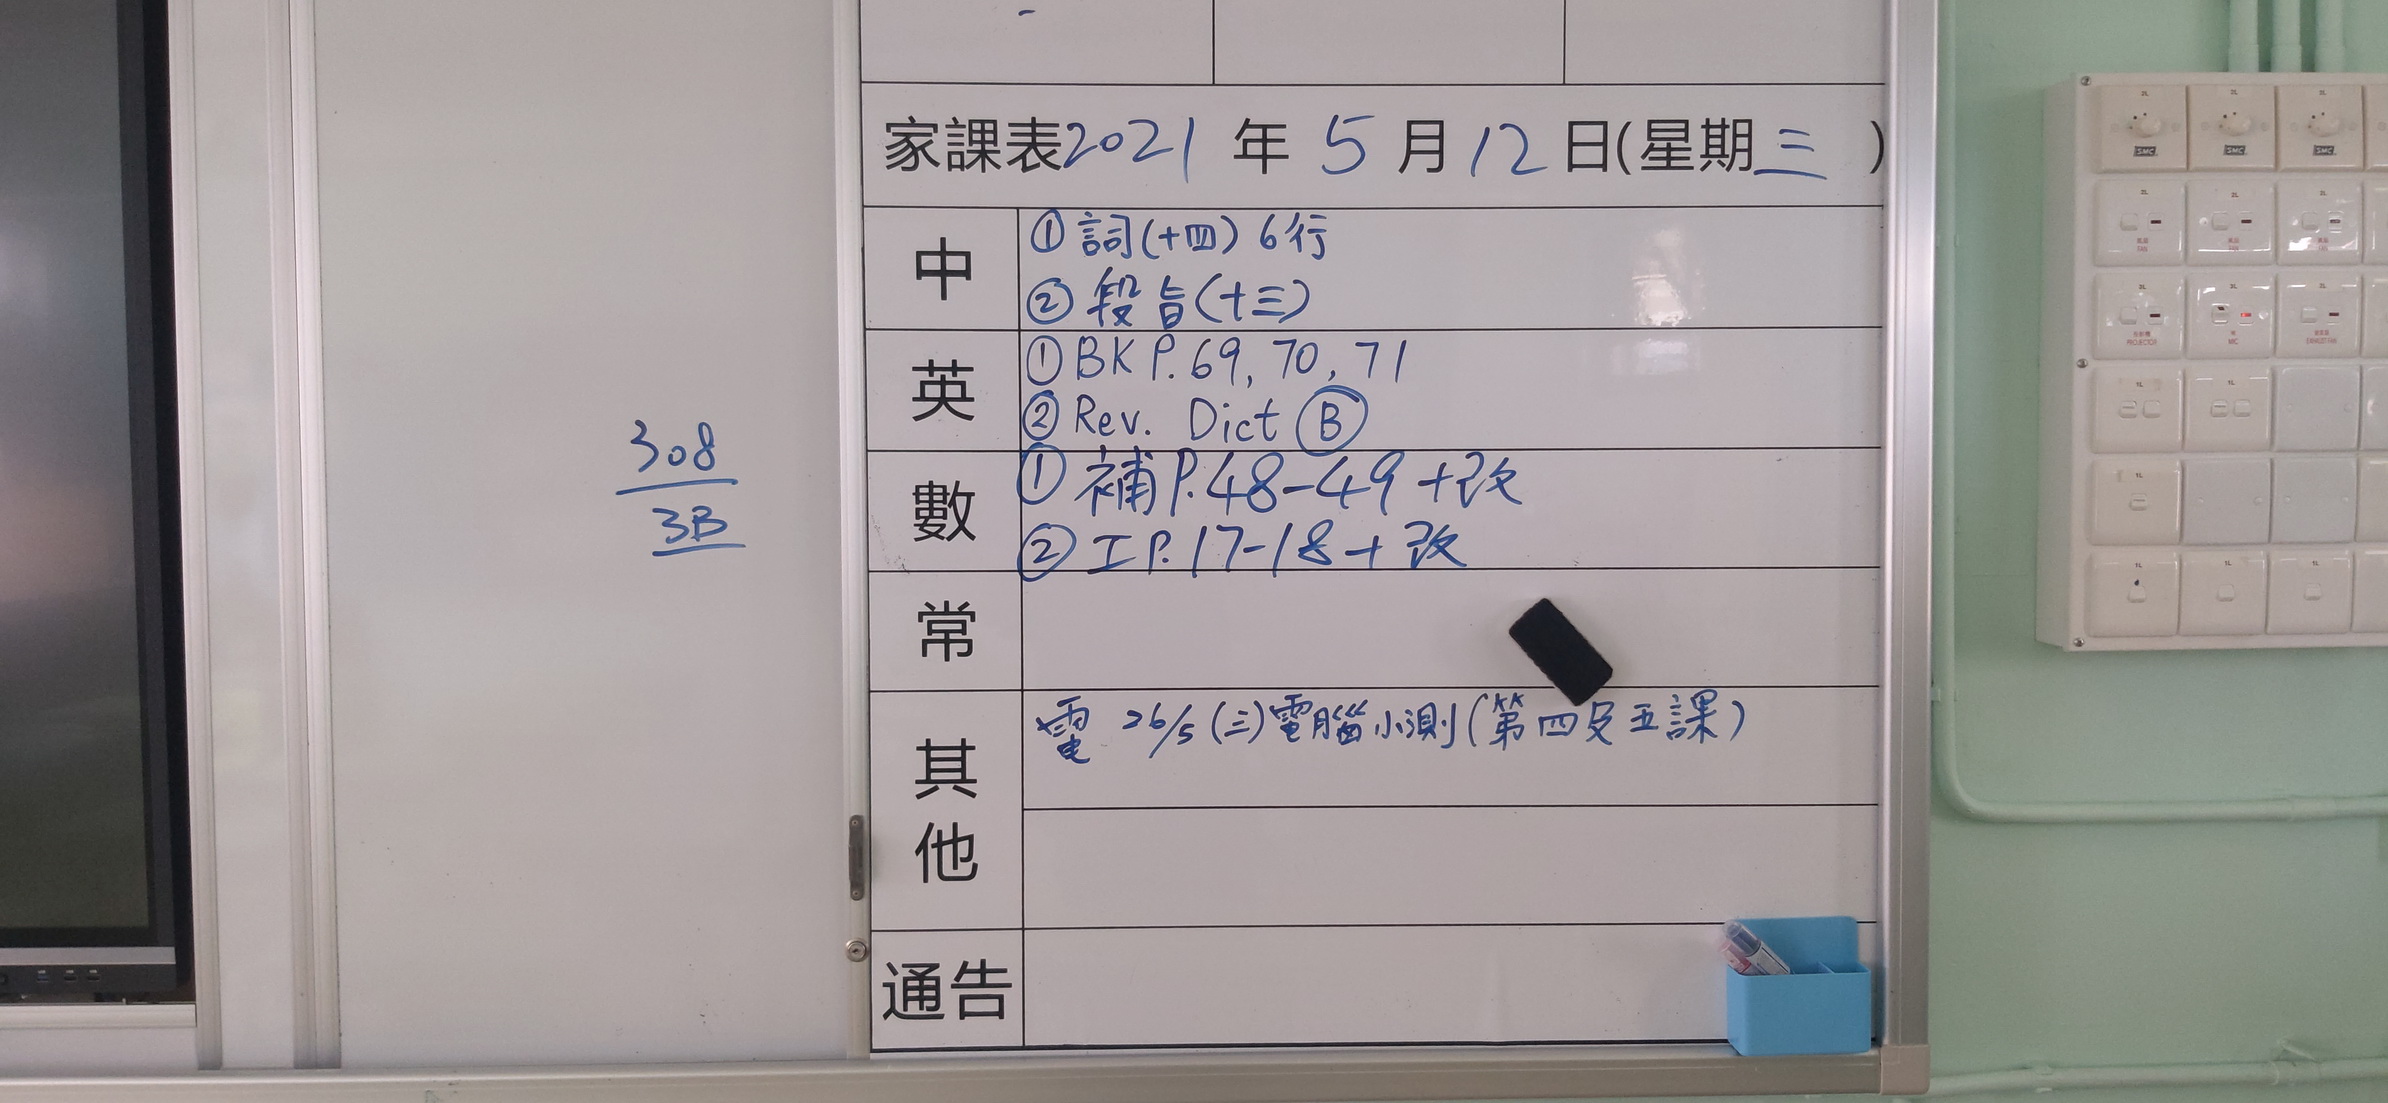 家課表2021年5月12日(星期三)
中
①詞(十四)6行
②段旨(十三)
英
①BK P.69, 70, 71
②Rev. Dict Ⓑ
數
①補P.48-49+改
②工P.17-18+改
常
其他
電 26/5(三)電腦小測(第四及五課)
通告
308
3B